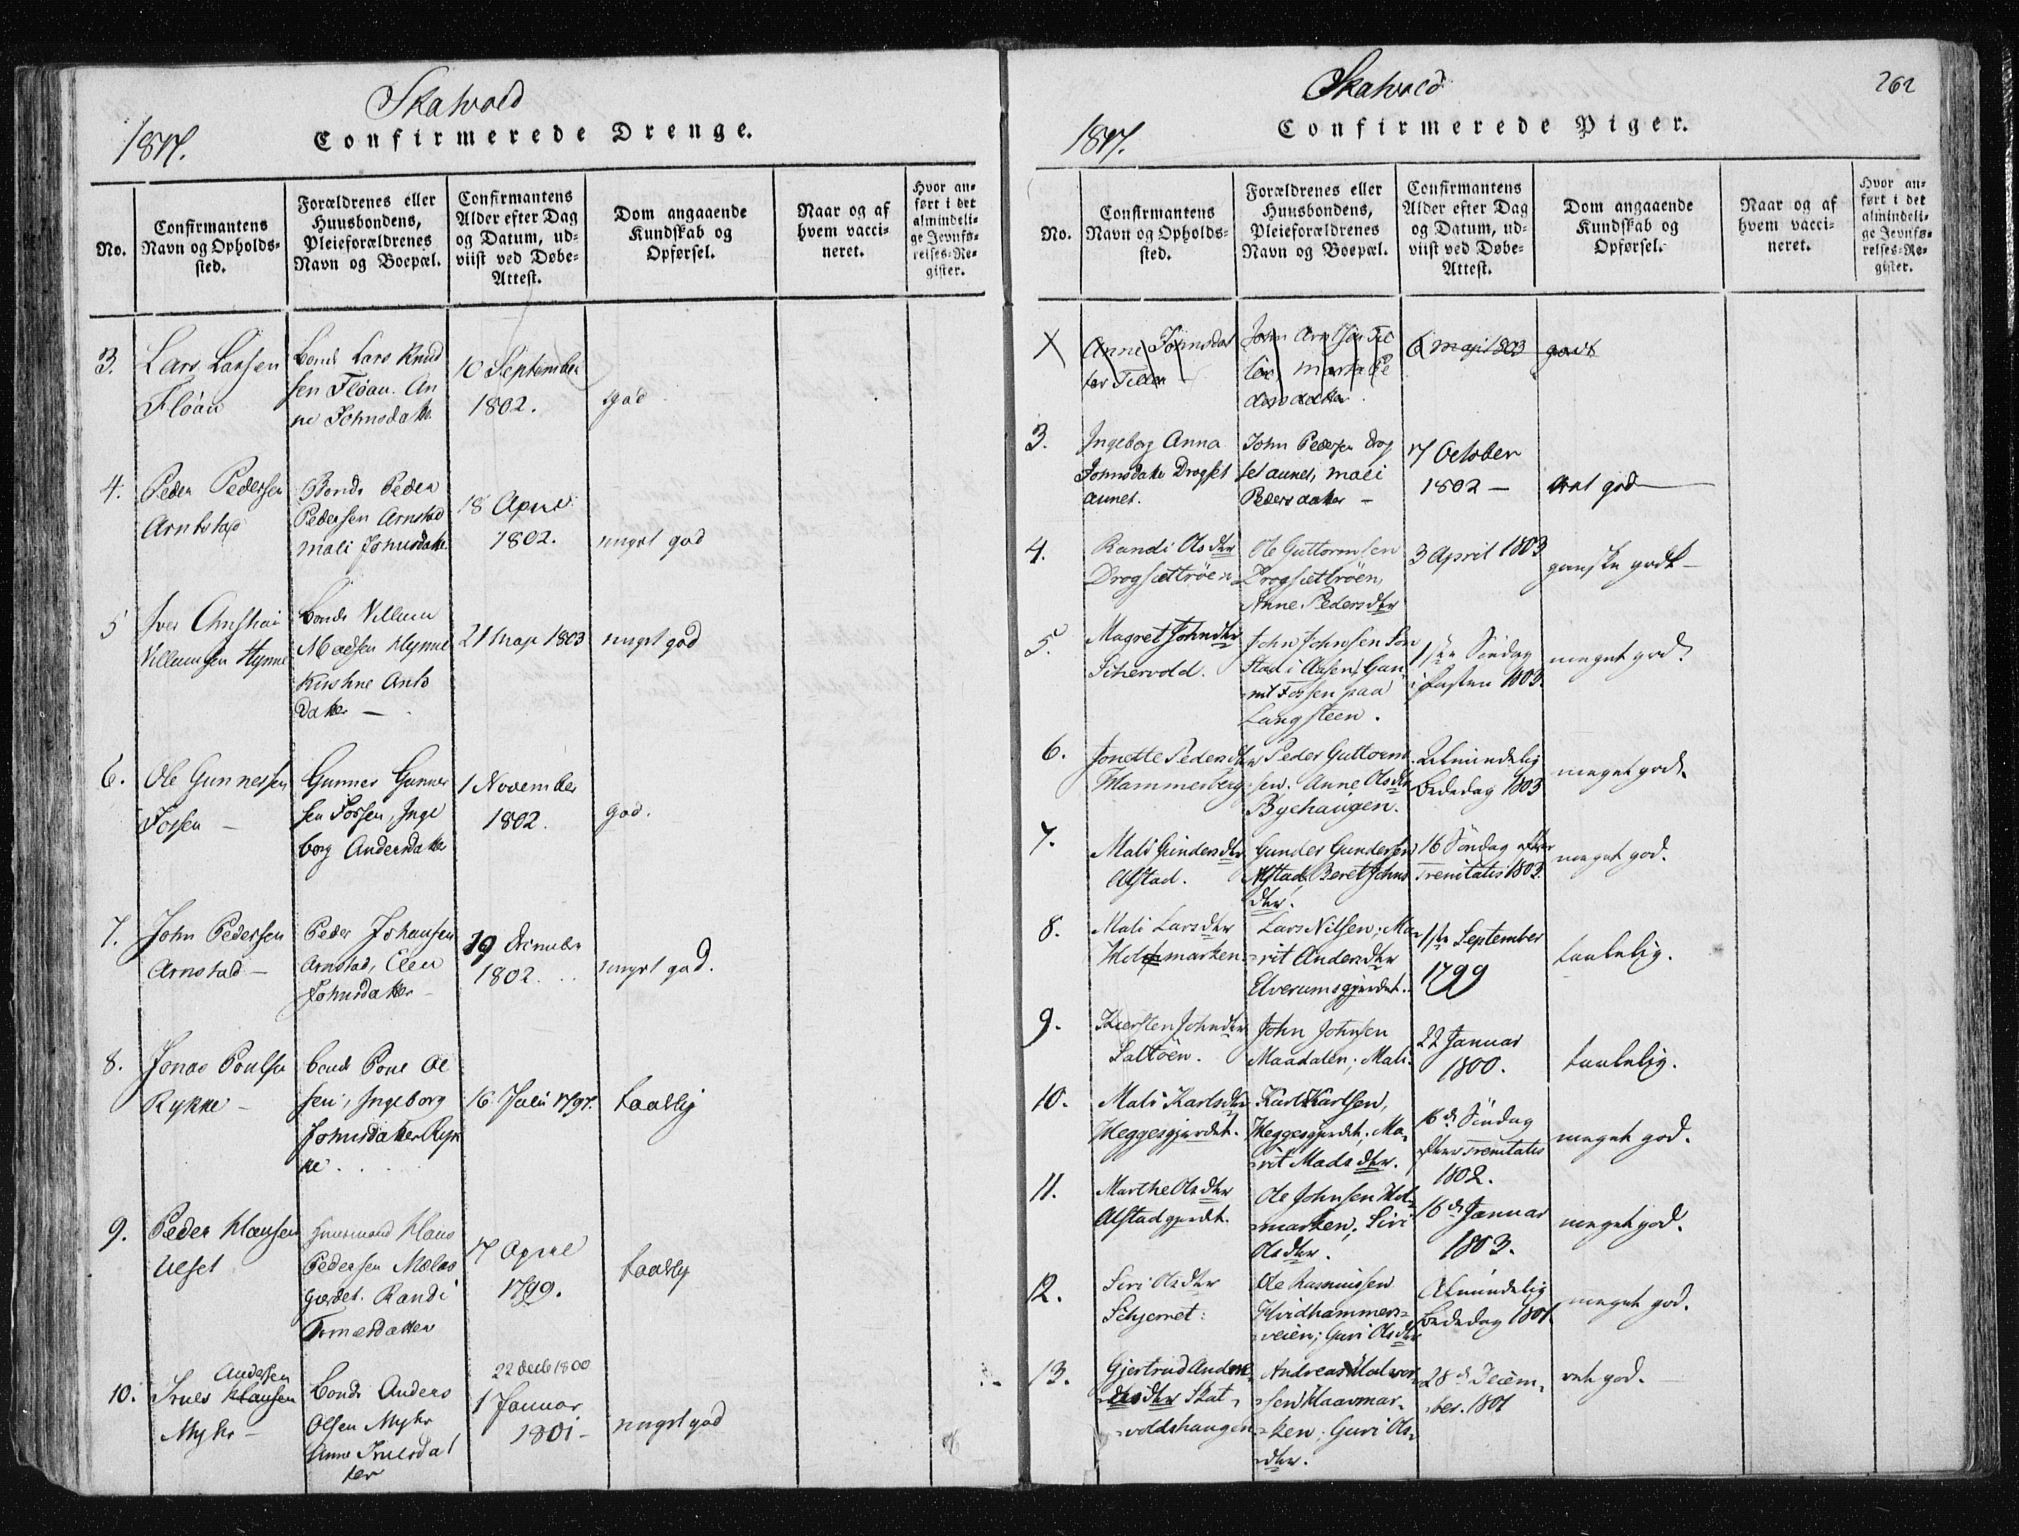 Skatvold
1817.
Confirmerede Drenge.
No.
Confirmantens
Navn og Opholds-
sted.
Forældrenes eller
Huusbondens,
Pleieforældrenes
Navn og Boepæl.
Confirmantens
Alder efter Dag
og Datum, ud-
viist ved Døbe-
Attest.
Dom angaaende
Kundskab og
Opførsel.
Naar og af
hvem vacci-
neret.
Hvor an-
ført i det
almindeli-
ge Jevnfø-
relses-Re-
gister.
3.
Lars Larsen
Fløan
Bonde Lars Knud
sen Fløan. An
ne Johnsdatter
10 September
1802.
god
4.
Peder Pedersen
Arnstad
Bonde Peder
Pedersen Arnstad
Mali Johnsdatter
18 April
1802.
meget god
5
Iver Christian
Villumsen Hynne
Bonde Villum
Madsen Hynne
Kirstine Ants
datter —
21 Maji 1803
meget god
6.
Ole Gunnersen
Fossen —
Gunner Gunner
sen Fossen, Inge
borg Andersdatter
1 November
1802.
god.
7.
John Pedersen
Arnstad —
Peder Johansen
Arnstad, Elen
Johnsdatter
19 December
1802.
meget god.
8.
Jonas Poulsen
Rykke —
Bonde Poul Ol
sen, Ingeborg
Johnsdatter Ryk
ke.
16 Juli 1797.
taalelig
9.
Peder Hansen
Velset
Huusmand Hans
Pedersen Mælas
gærdet. Randi
Tomasdatter
17 April
1799.
taalelig
10.
Andersen
Truls Hansen
Myhr —
Bonde Anders
Olsen Myhr
Anne Trulsdat
ter
22 decb 1800
1 Januar
1801 —
meget god
Skatvold
262
1817.
Confirmerede Piger.
No.
Confirmantens
Navn og Opholds-
sted.
Forældrenes eller
Huusbondens,
Pleieforældrenes
Navn og Boepæl.
Confirmantens
Alder efter Dag
og Datum, ud-
viist ved Døbe-
Attest.
Dom angaaende
Kundskab og
Opførsel.
Naar og af
hvem vacci-
neret.
Hvor an-
ført i det
almindeli-
ge Jevnfø-
relses-Re-
gister.
Anne Johnsdat
ter Tiller
John Arntsen Til
ler, Marta Pe
dersdatter.
6 Maji 1803
godt
3.
Ingeborg Anna
Johnsdatter Drogset
aunet.
John Pedersen Drog
setaunet, Mali
Pedersdatter —
17 October
1802 —
ret god
4.
Randi Olsdtter
Drogsættrøen
Ole Guttormsen
Drogsættrøen,
Anne Pedersdtter
3 April 1803
ganske godt —
5.
Magret Johnsdtter
Schervold.
John Johnsen Son
stad i Aasen, Gun
nil Fossen paa
Langsteen.
1ste Søndag
i Fasten 1803.
meget god.
6.
Jonette Pedersdtter
Hammerberg
Peder Guttorm
sen. Anne Olsdtter
Bychaugen.
Almindelig
Bededag 1803
meget god.
7.
Mali Gundersdtter
Alstad.
Gunder Gundersen
Alstad, Beret Johns
dtter.
16 Søndag efter
Trenitatis 1802.
meget god.
8.
Mali Larsdtter
Helmarken.
Lars Nilsen; Ma-
rit Andersdtter
Elverumsgjerdet.
1ste September
1799
taalelig.
9.
Kiersten Johnsdtter
Saltøen.
John Johnsen
Maadalen; Mali
22 Januar
1800.
taalelig.
10.
Mali Karlsdtter
Heggesgjerdet.
Karl Karlsen,
Heggesgjerdet. Ma-
rit Madsdtter.
16de Søndag
efter Trenitatis
1802.
meget god.
11.
Marthe Olsdtter
Alstadgjerdet.
Ole Johnsen Hel-
marken; Siri
Olsdtter.
16de Januar
1803.
meget god.
12.
Siri Olsdtter
Schjernet.
Ole Rasmussen
Hvidhammers-
veien; Guri Olsdtter
Almindelig
Bededag 1801
meget god.
13.
Gjertrud Andre-
asdtter Skat-
voldshaugen
Andreas Halvor-
sen Haavmar-
ken; Guri Ols-
dtter.
28de Decem-
ber. 1801
ret god.